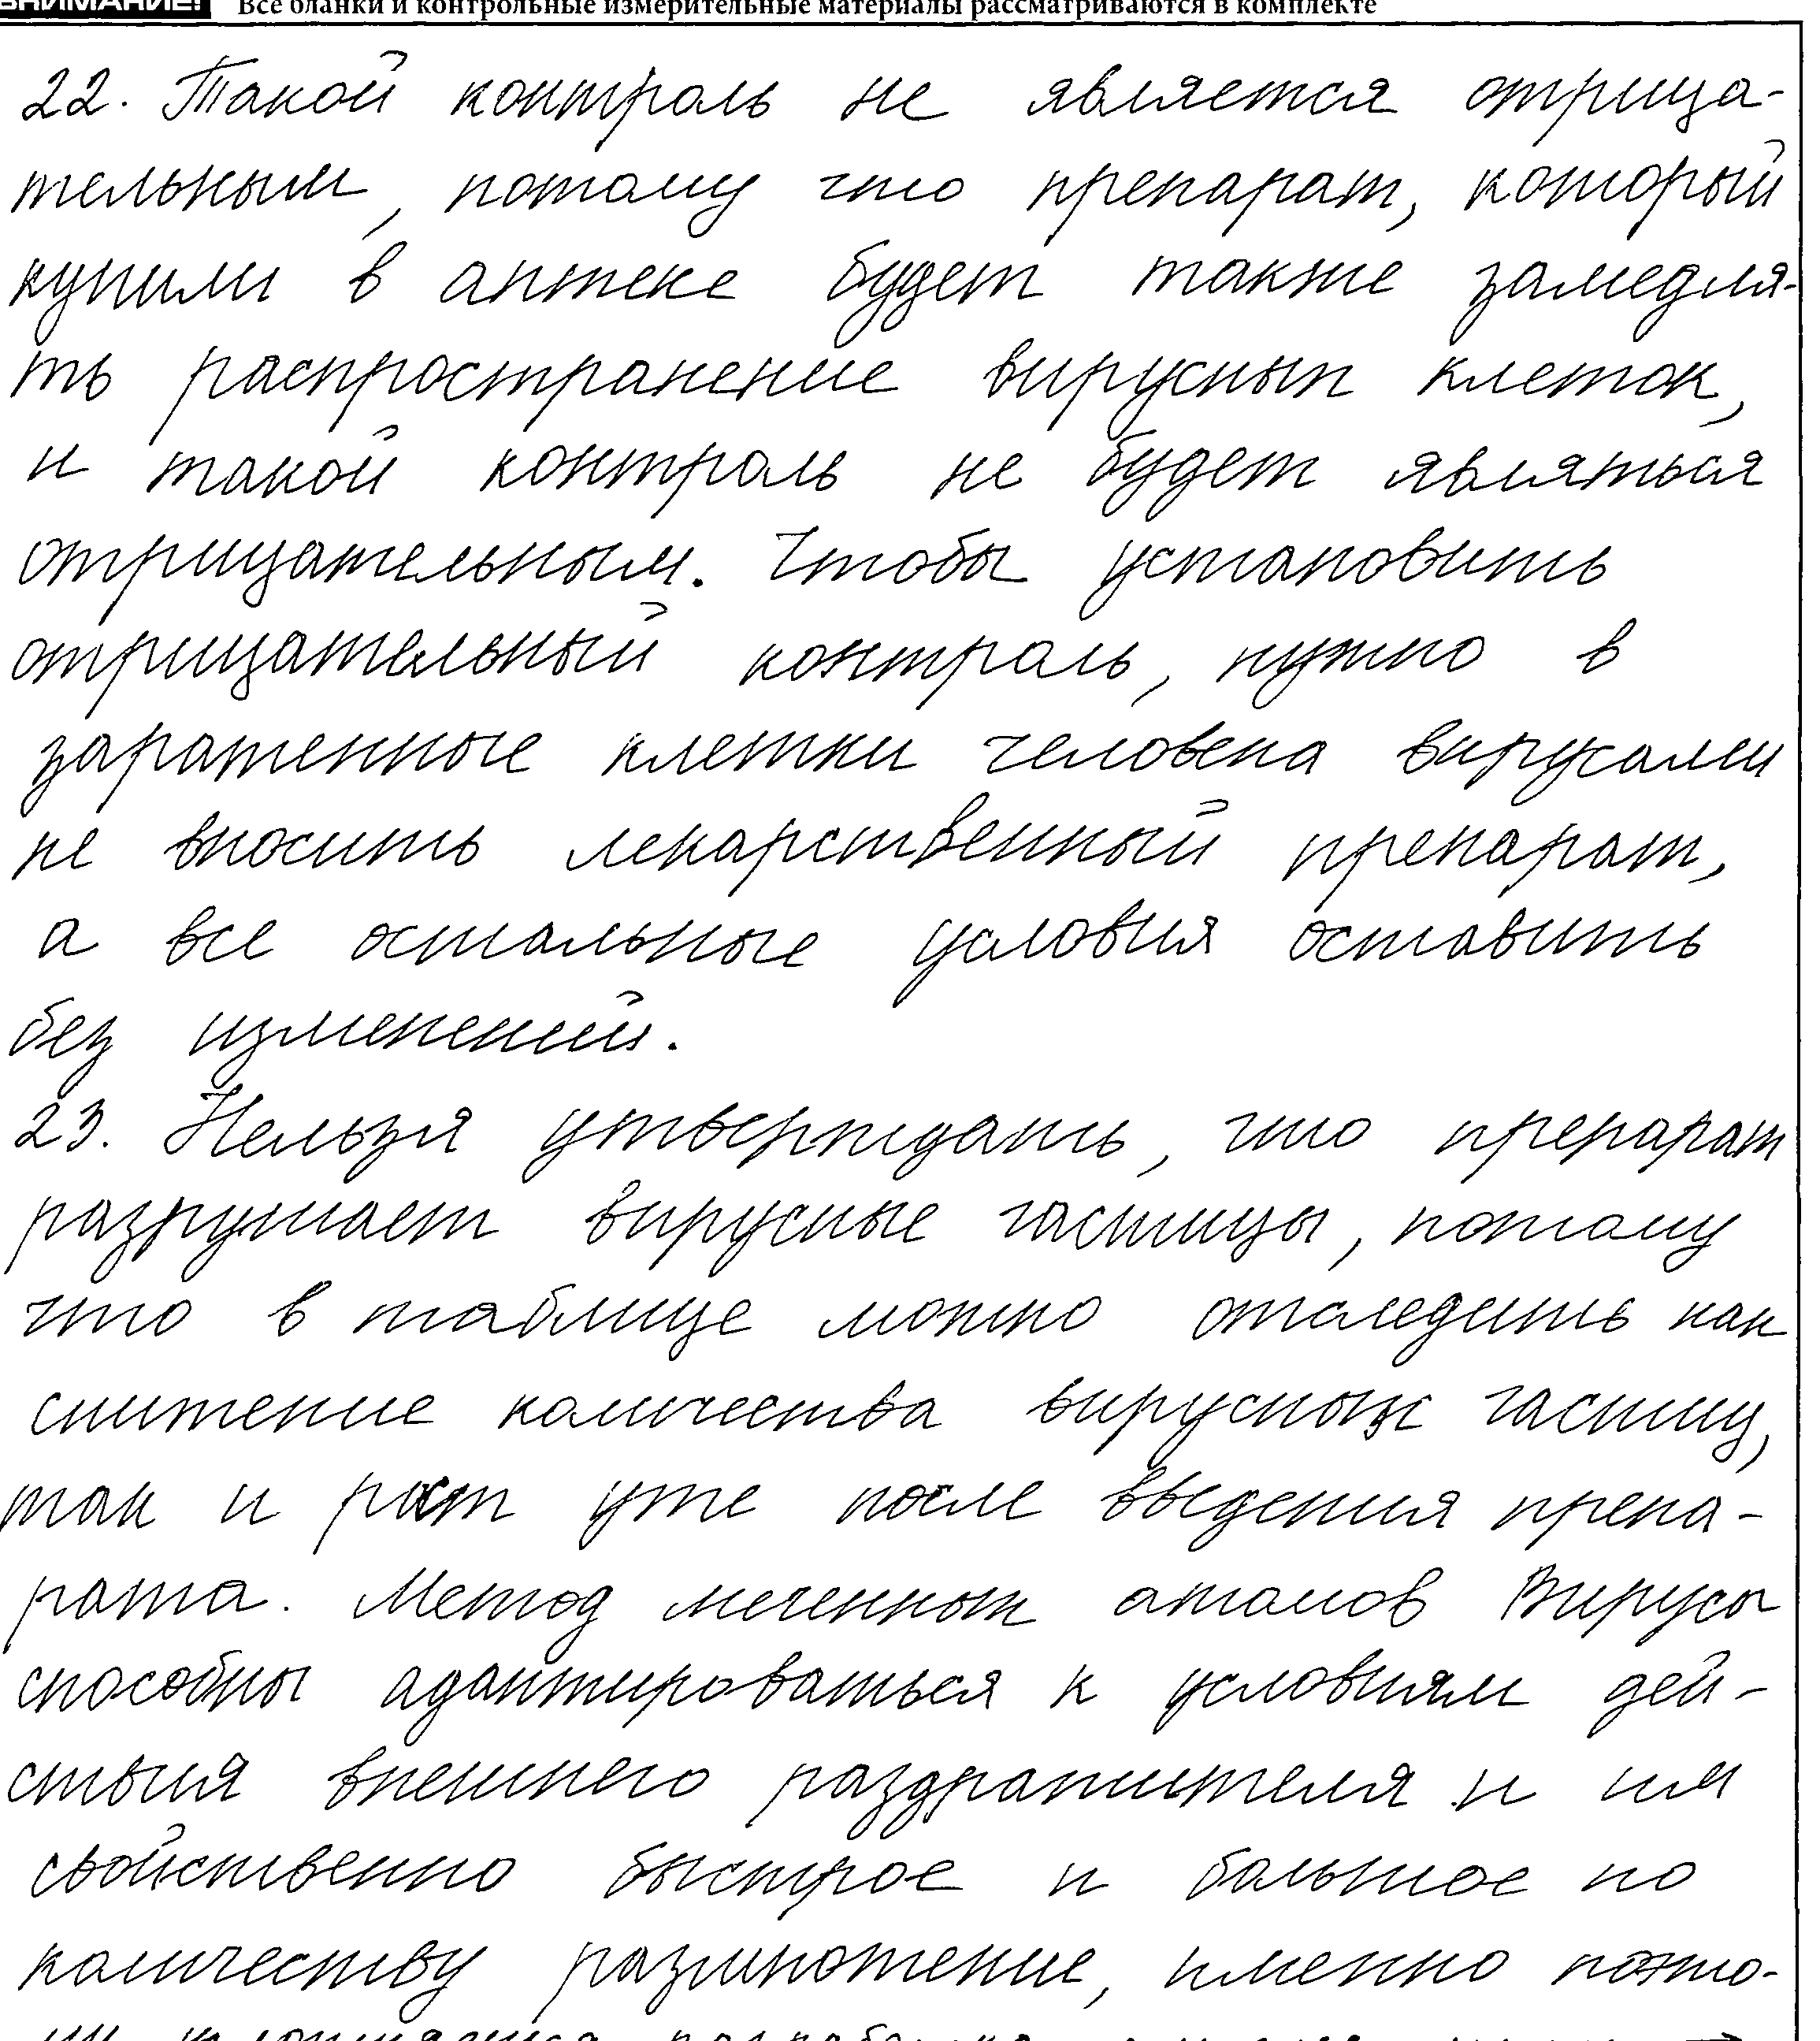 ВНИМАНИЕ! Все бланки и контрольные измерительные материалы рассматриваются в комплекте
22. Такой контроль не является отрица-
тельным, потому что препарат, который
купили в аптеке будет также замедля-
ть распространение вирусных клеток,
и такой контроль не будет являться
отрицательным. Чтобы установить
отрицательный контроль, нужно в
зараженные клетки человека вирусами
не вносить лекарственный препарат,
а все остальные условия оставить
без изменений.
23. Нельзя утверждать, что прерарат
разрушает вирусные частицы, потому
что в таблице можно отследить как
снижение количества вирусных частиц,
так и рост уже после введения препа-
рата. Метод меченных атомов Вирусы
способны адаптироваться к условиям дей-
ствия внешнего раздражителя и им
свойственно быстрое и большое по
количеству размножение, именно поэто-